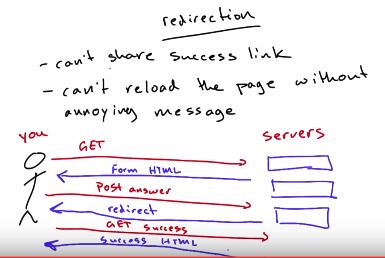 redirection
- can't share success link
- can't reload the page without
annoying message
you
servers
GET
Form HTML
Post answer
redirect
GET success
success HTML